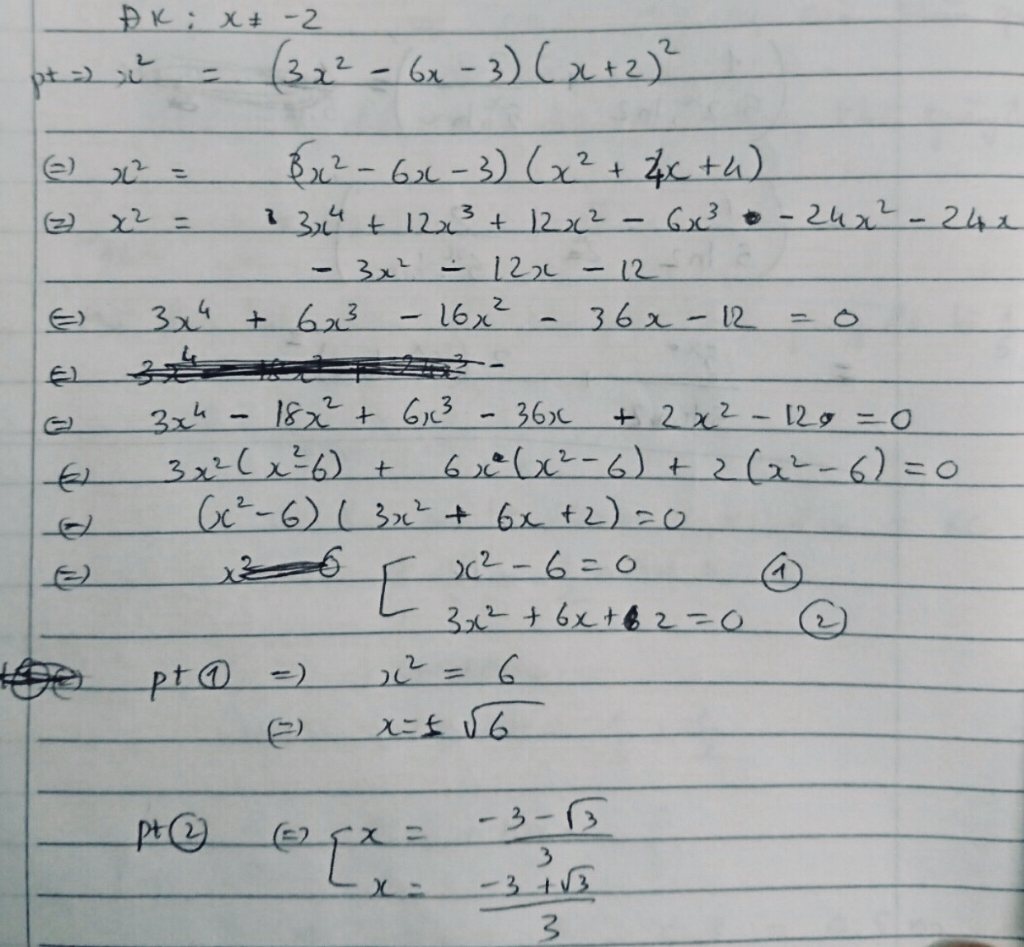 ĐK : x ≠ -2
pt => x² = (3x² - 6x - 3)(x+2)²
(=) x² = (3x² - 6x - 3)(x² + 4x + 4)
(=) x² = 3x⁴ + 12x³ + 12x² - 6x³ - 24x² - 24x
- 3x² - 12x - 12
(=) 3x⁴ + 6x³ - 16x² - 36x - 12 = 0
(=) -
(=) 3x⁴ - 18x² + 6x³ - 36x + 2x² - 12 = 0
(=) 3x²(x²-6) + 6x(x²-6) + 2(x²-6) = 0
(=) (x²-6)(3x² + 6x + 2) = 0
(=) [ x² - 6 = 0 ①
3x² + 6x + 2 = 0 ②
pt ① =) x² = 6
(=) x = ± √6
pt ② (=) [ x = (-3-√3)/3
x = (-3+√3)/3